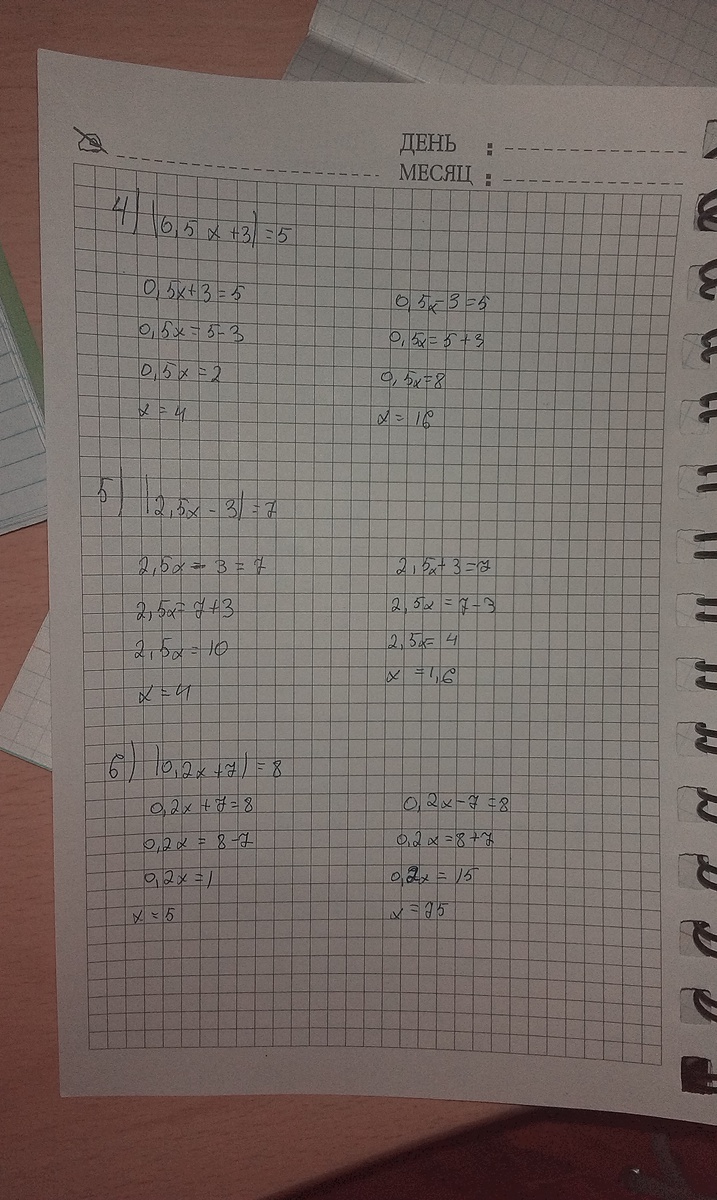 ДЕНЬ :
МЕСЯЦ :
4) |0,5 x +3| = 5
0,5x+3 = 5
0,5x = 5-3
0,5x = 2
x = 4
0,5x-3 = 5
0,5x = 5+3
0,5x=8
x = 16
5) |2,5x - 3| = 7
2,5x - 3 = 7
2,5x = 7+3
2,5x = 10
x = 4
2,5x+3 = 7
2,5x = 7-3
2,5x = 4
x = 1,6
6) |0,2x +7| = 8
0,2x + 7 = 8
0,2x = 8-7
0,2x = 1
x = 5
0,2x-7 = 8
0,2x = 8+7
0,2x = 15
x = 75